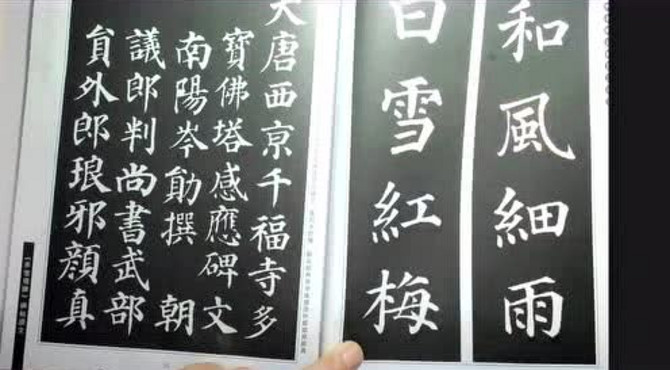 和風細雨
白雪紅梅
大唐西京千福寺多
寶佛塔感應碑文
南陽岑勛撰 朝
議郎判尚書武部
員外郎琅邪顏真